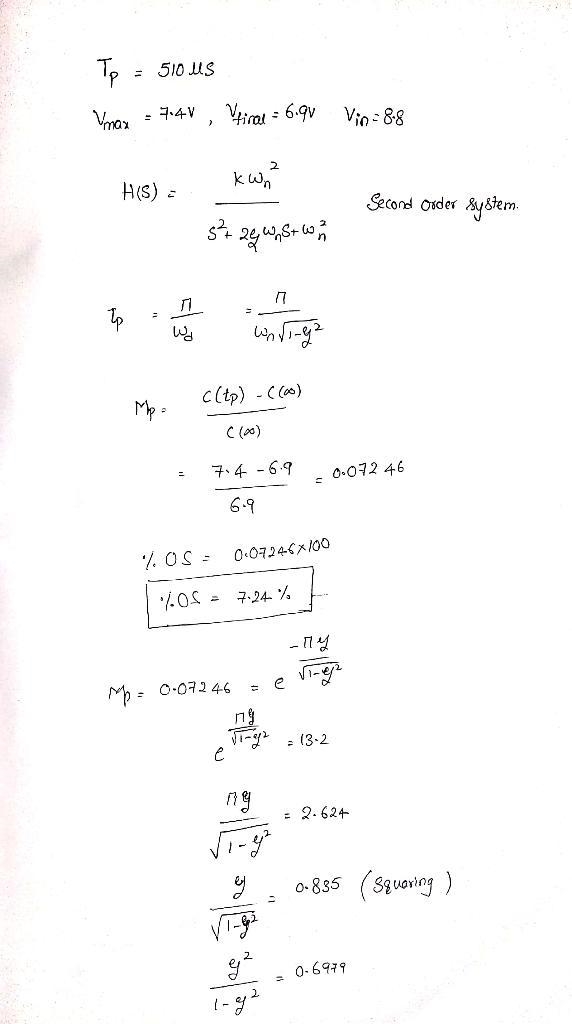 Tp = 510 us
Vmax = 7.4V , Vfinal = 6.9V Vin = 8.8
H(S) = kωn² / S² + 2ξωnS + ωn² Second order system.
Tp = π / ωd = π / ωn√1-ξ²
Mp = C(tp) - C(∞) / C(∞)
= 7.4 - 6.9 / 6.9 = 0.07246
% OS = 0.07246×100
% OS = 7.24 %
Mp = 0.07246 = e^(-πξ / √1-ξ²)
e^(πξ / √1-ξ²) = 13.2
πξ / √1-ξ² = 2.624
ξ / √1-ξ² = 0.835 (Squaring)
ξ² / 1-ξ² = 0.6979